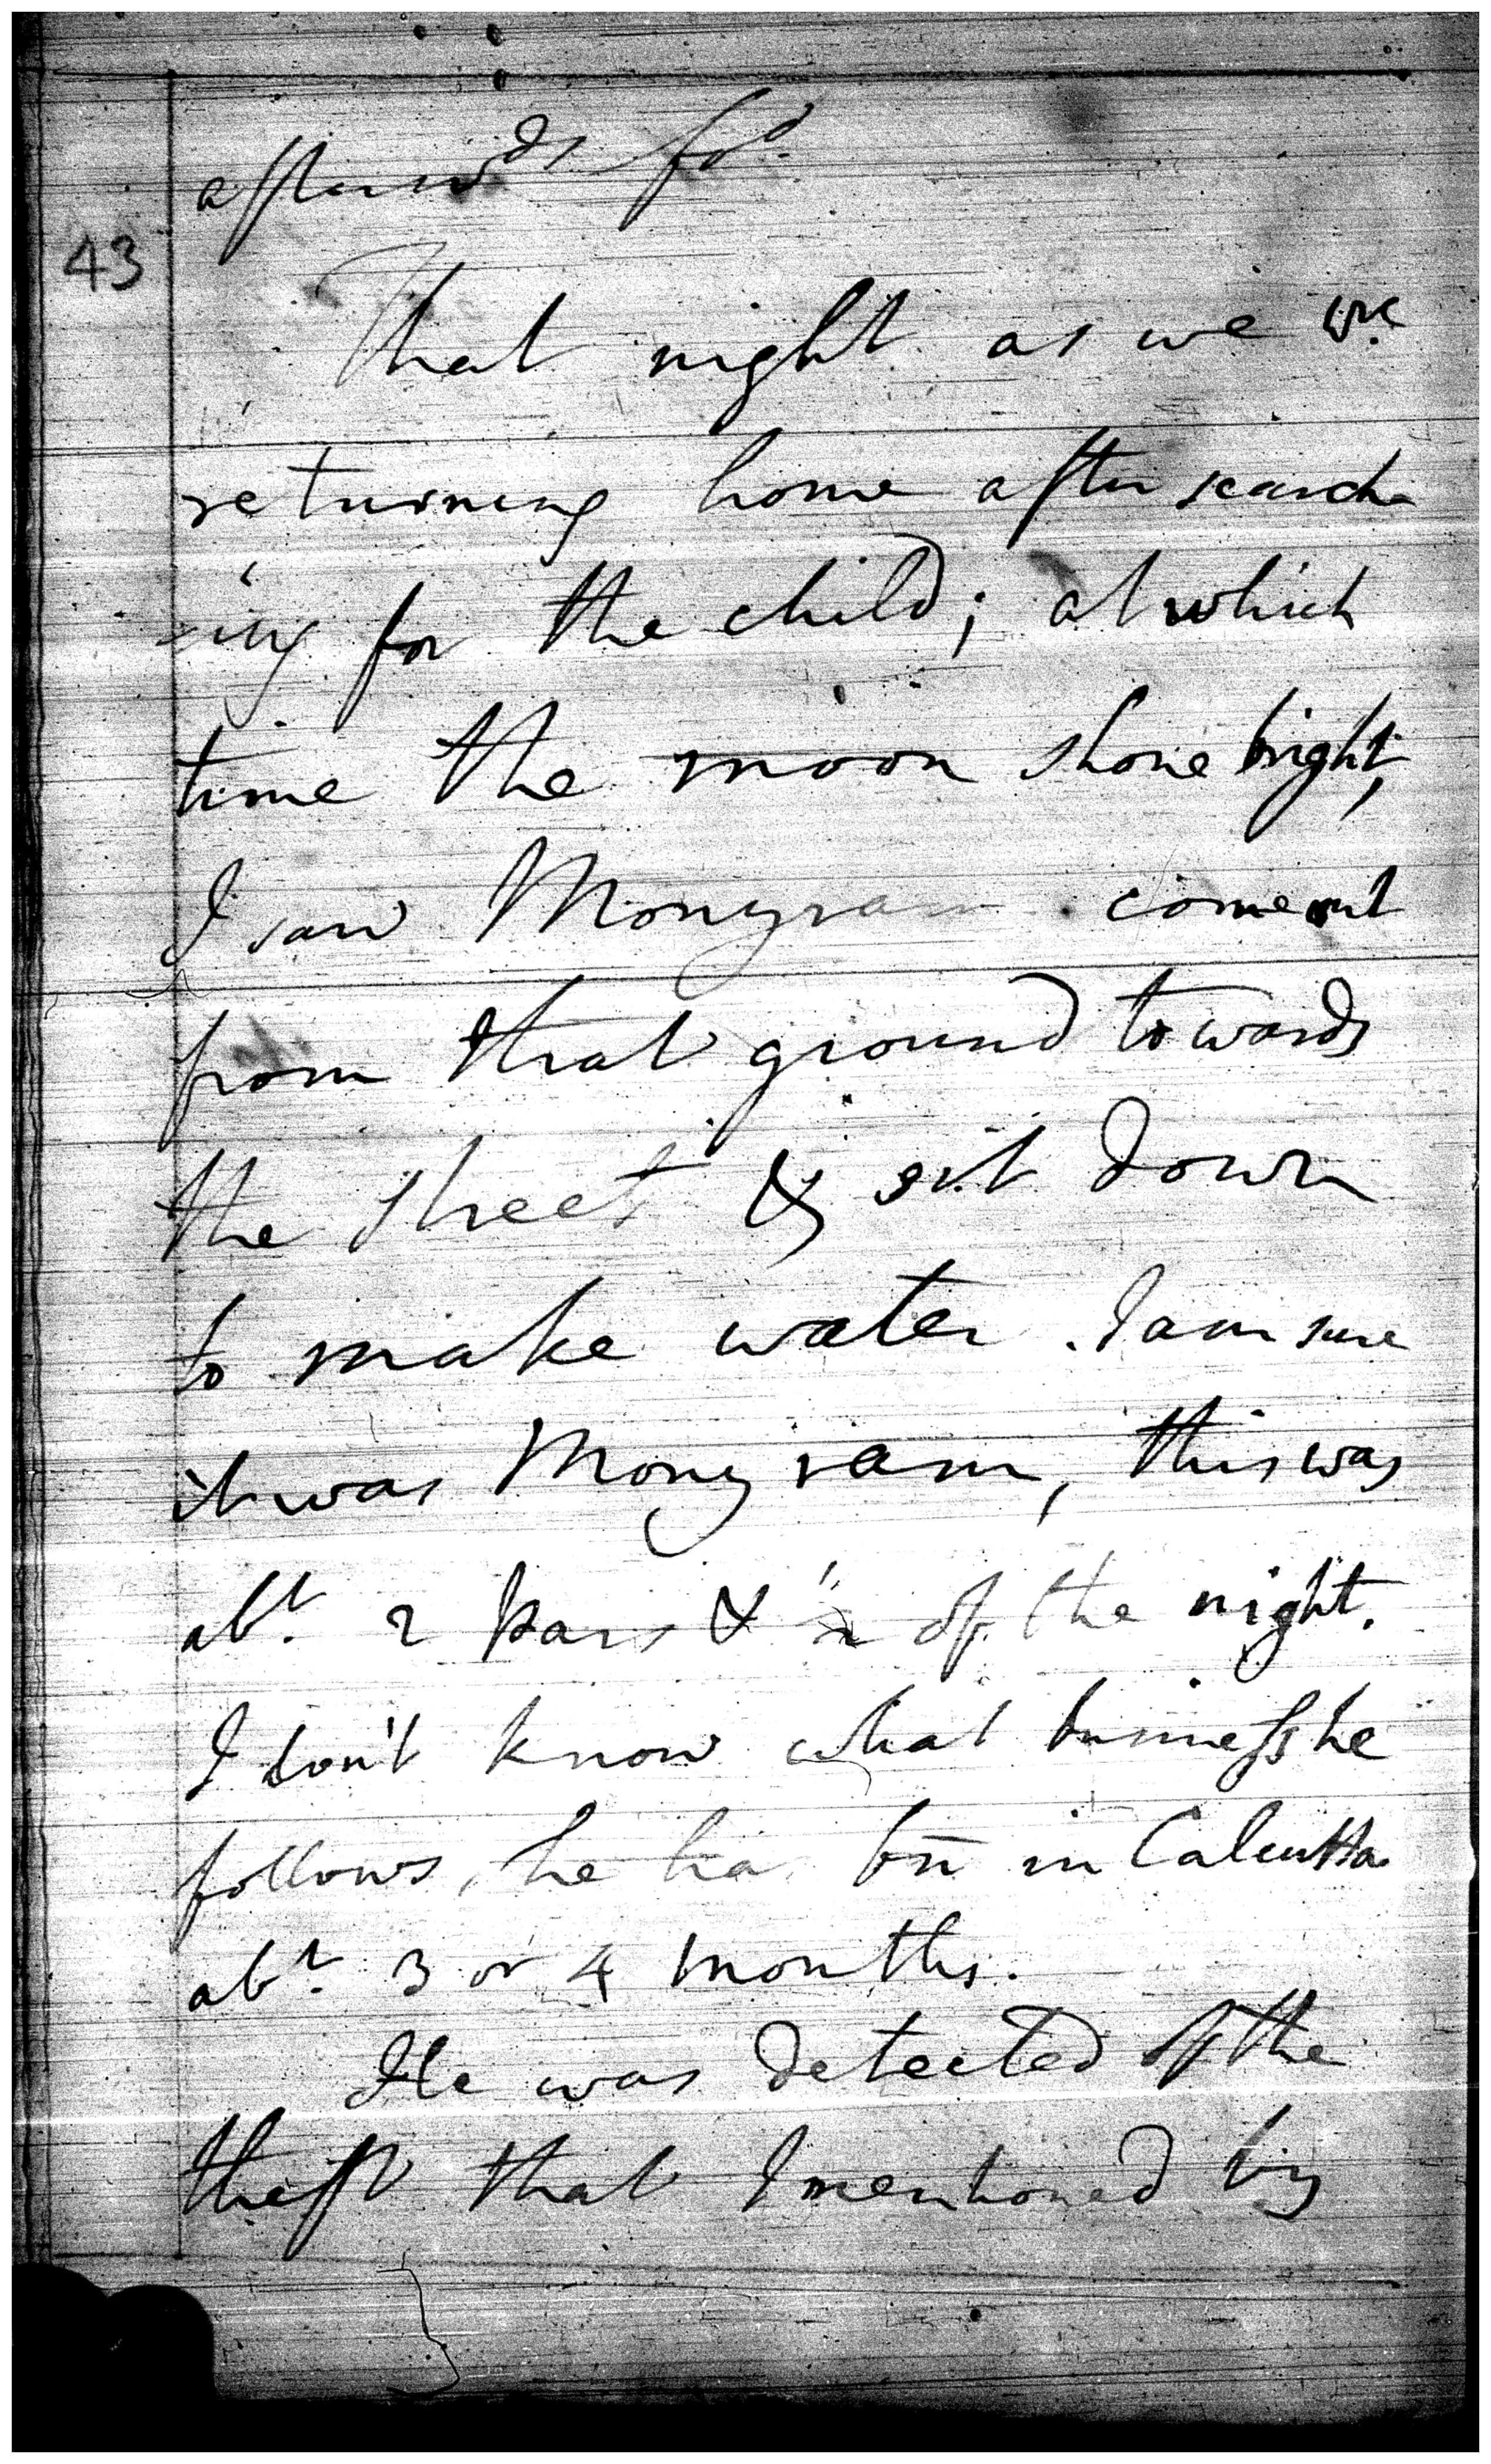 afterwds. fod.
43
That night as we wre.
returning home after search-
-ing for the child; at which
time the moon shone bright,
I saw Monyram come out
from that ground towards
the street & sit down
to make water. I am sure
it was Monyram, this was
abt. 2 Pars & ½ of the night.
I don't know what business he
follows, he has bn in Calcutta
abt. 3 or 4 months.
He was detected of the
theft that I mentioned by